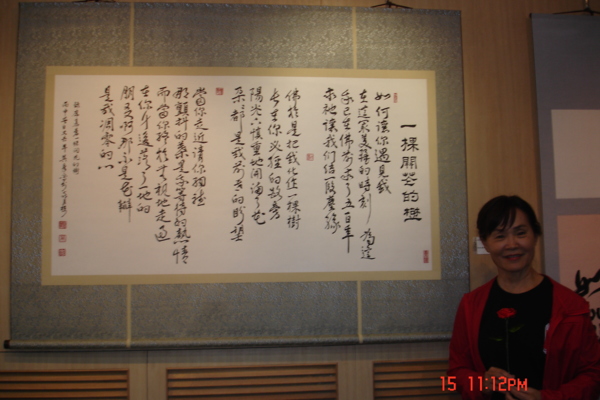 一棵開花的樹
如何讓你遇見我
在這最美麗的時刻 為這
我已在佛前求了五百年
求祂讓我們結一段塵緣
佛於是把我化作一棵樹
長在你必經的路旁
陽光下慎重地開滿了花
朵朵都是我前世的盼望
當你走近請你細聽
那顫抖的葉是我等待的熱情
而當你終於無視地走過
在你身後落了一地的
朋友啊那不是花瓣
是我凋零的心
15 11:12PM